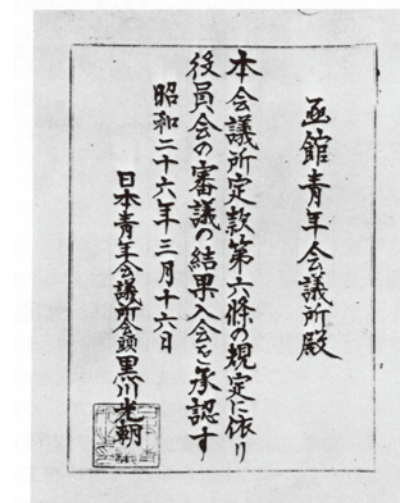 函館青年会議所殿
本会議所定款第六條の規定に依り
役員会の審議の結果入会を承認す
昭和二十六年三月十六日
日本青年会議所会頭黒川光朝